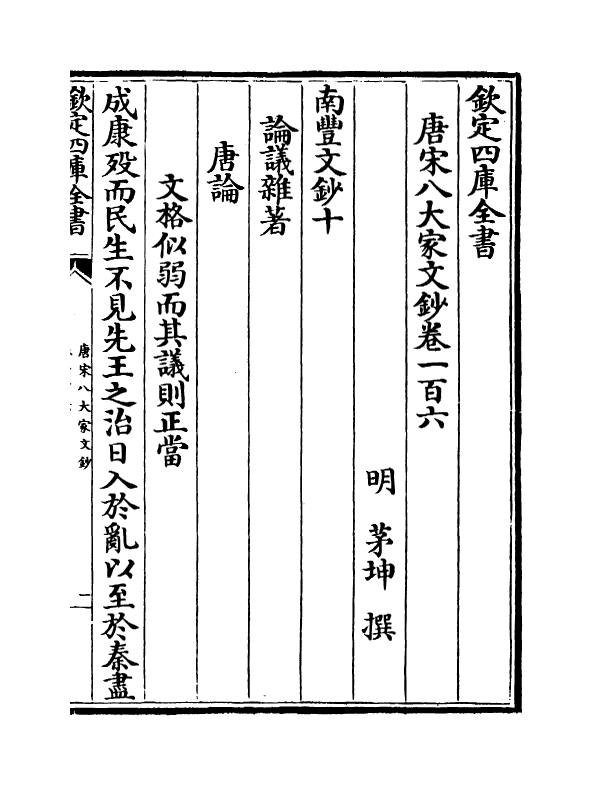 欽定四庫全書
唐宋八大家文鈔卷一百六
明 茅坤 撰
南豐文鈔十
論議雜著
唐論
文格似弱而其議則正當
成康殁而民生不見先王之治日入於亂以至於秦盡
欽定四庫全書
唐宋八大家文鈔
二